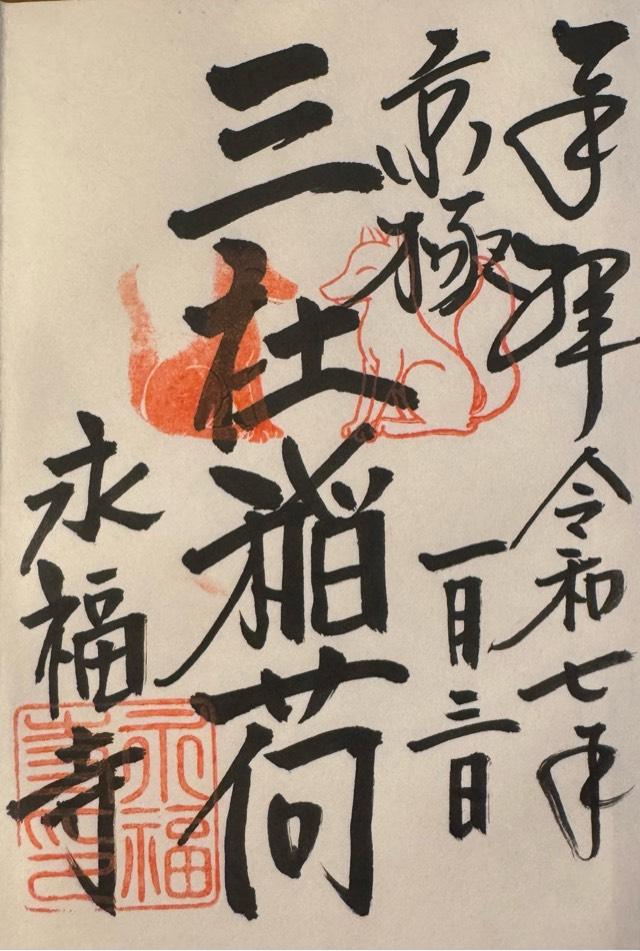 奉拝
令和七年
京極
一月三日
三社稲荷
永福寺
永福
寺印